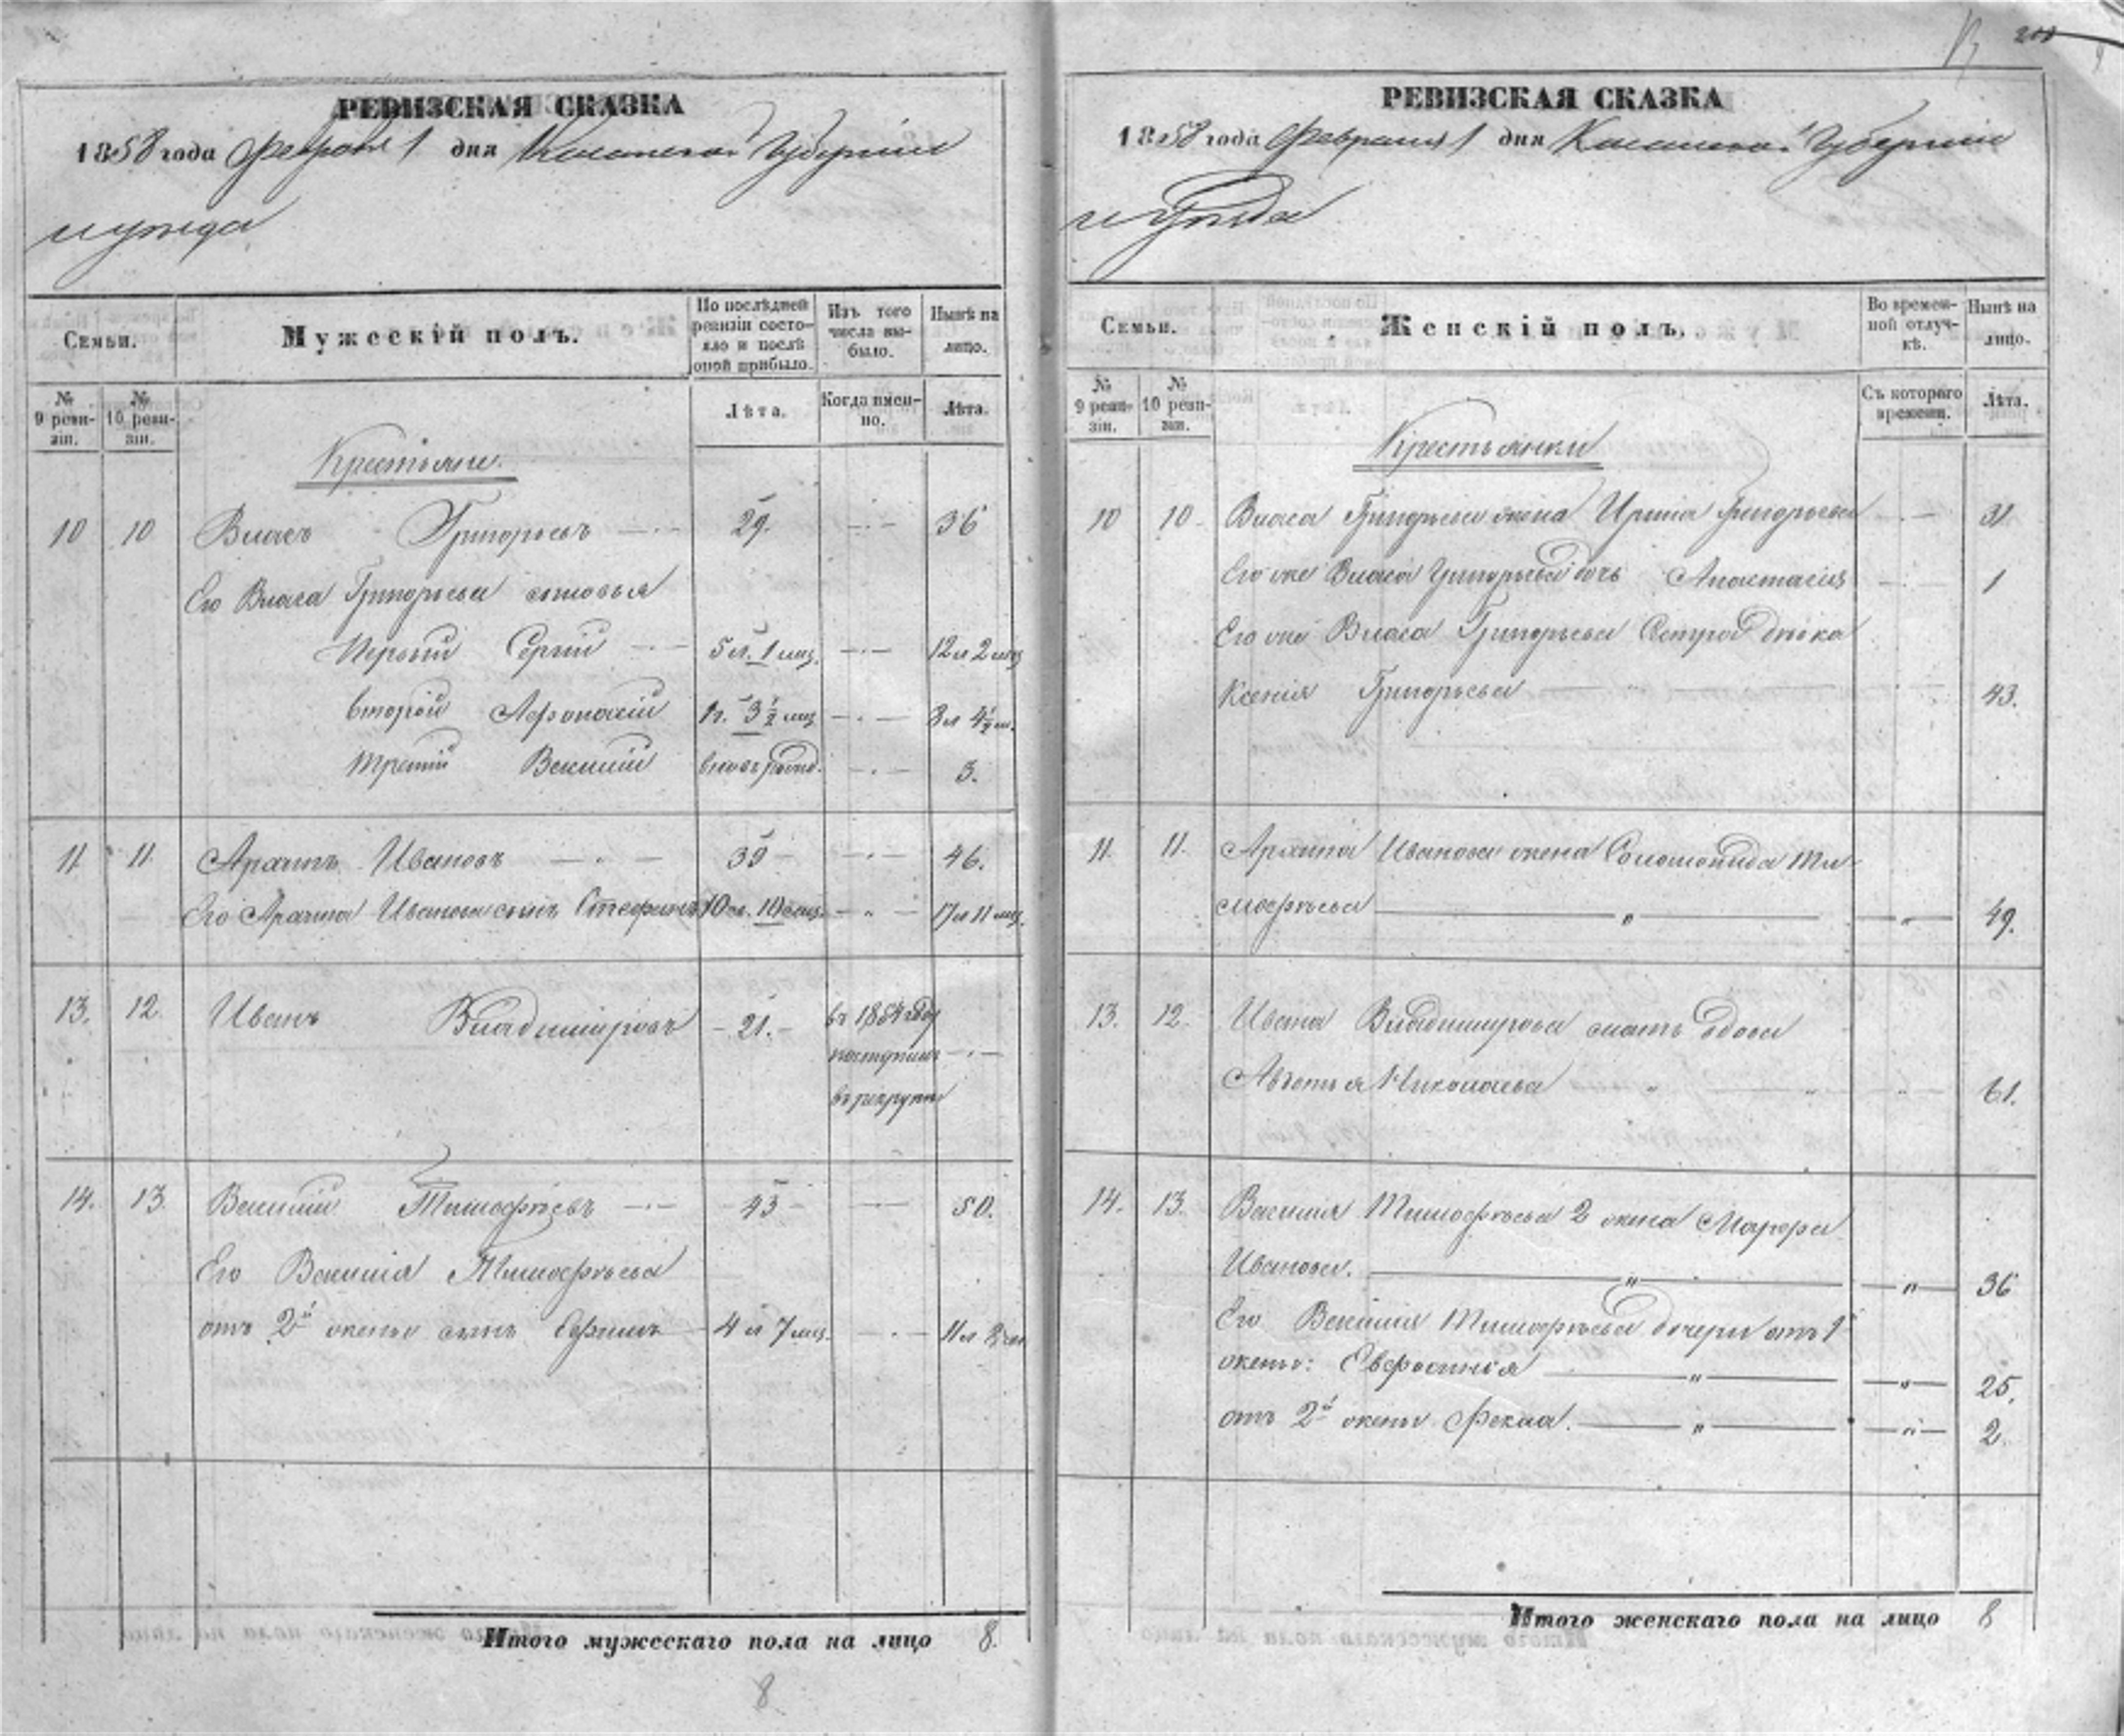 200
РЕВИЗСКАЯ СКАЗКА
1858 года Февраля 1 дня Казанской Губерніи
и уѣзда
Семьи.
Мужескій полъ.
По послѣдней ревизіи состояло и послѣ оной прибыло.
Изъ того числа выбыло.
Нынѣ на лицо.
№ 9 ревизіи.
№ 10 ревизіи.
Лѣта.
Когда именно.
Лѣта.
Крестьяне.
10 10 Власъ Григорьевъ 29. 36
Его Власа Григорьева сыновья
Первый Сергій 5 л. 1 мѣц. 12 л 2 мѣц
второй Афонасій 1 г. 3½ мѣц 8 л 4½ м.
третій Василій вновь рожд. 3.
11 11 Архипъ Ивановъ 39 46.
Его Архипа Иванова сынъ Стефанъ 10 л. 10 мѣц. 17 л 11 мц.
13. 12. Иванъ Владимировъ 21. въ 1854 году
поступилъ
въ рекруты
14. 13. Василій Тимофѣевъ 43 50.
Его Василія Тимофѣева
отъ 2й жены сынъ Ефимъ 4 л 7 мц. 11 л 8 м
Итого мужескаго пола на лицо 8.
8
РЕВИЗСКАЯ СКАЗКА
1858 года Февраля 1 дня Казанской Губерніи
и уѣзда
Семьи.
Женскій полъ.
Во временной отлучкѣ.
Нынѣ на лицо.
№ 9 ревизіи.
№ 10 ревизіи.
Съ котораго времени.
Лѣта.
Крестьянки
10 10 Власа Григорьева жена Ирина Григорьева 31
Его же Власа Григорьева дочь Анастасія 1
Его же Власа Григорьева Сестра дѣвка
Ксенія Григорьева 43.
11. 11. Архипа Иванова жена Соломонида Ти-
мофѣева " " 49.
13. 12. Ивана Владимирова мать вдова
Авдотья Николаева " " 61.
14. 13. Василія Тимофѣева 2 жена Марфа
Иванова. " " 36
Его Василія Тимофѣева дочери отъ 1й
жены: Евфросинія " " 25.
отъ 2й жены Фекла. " " 2.
Итого женскаго пола на лицо 8